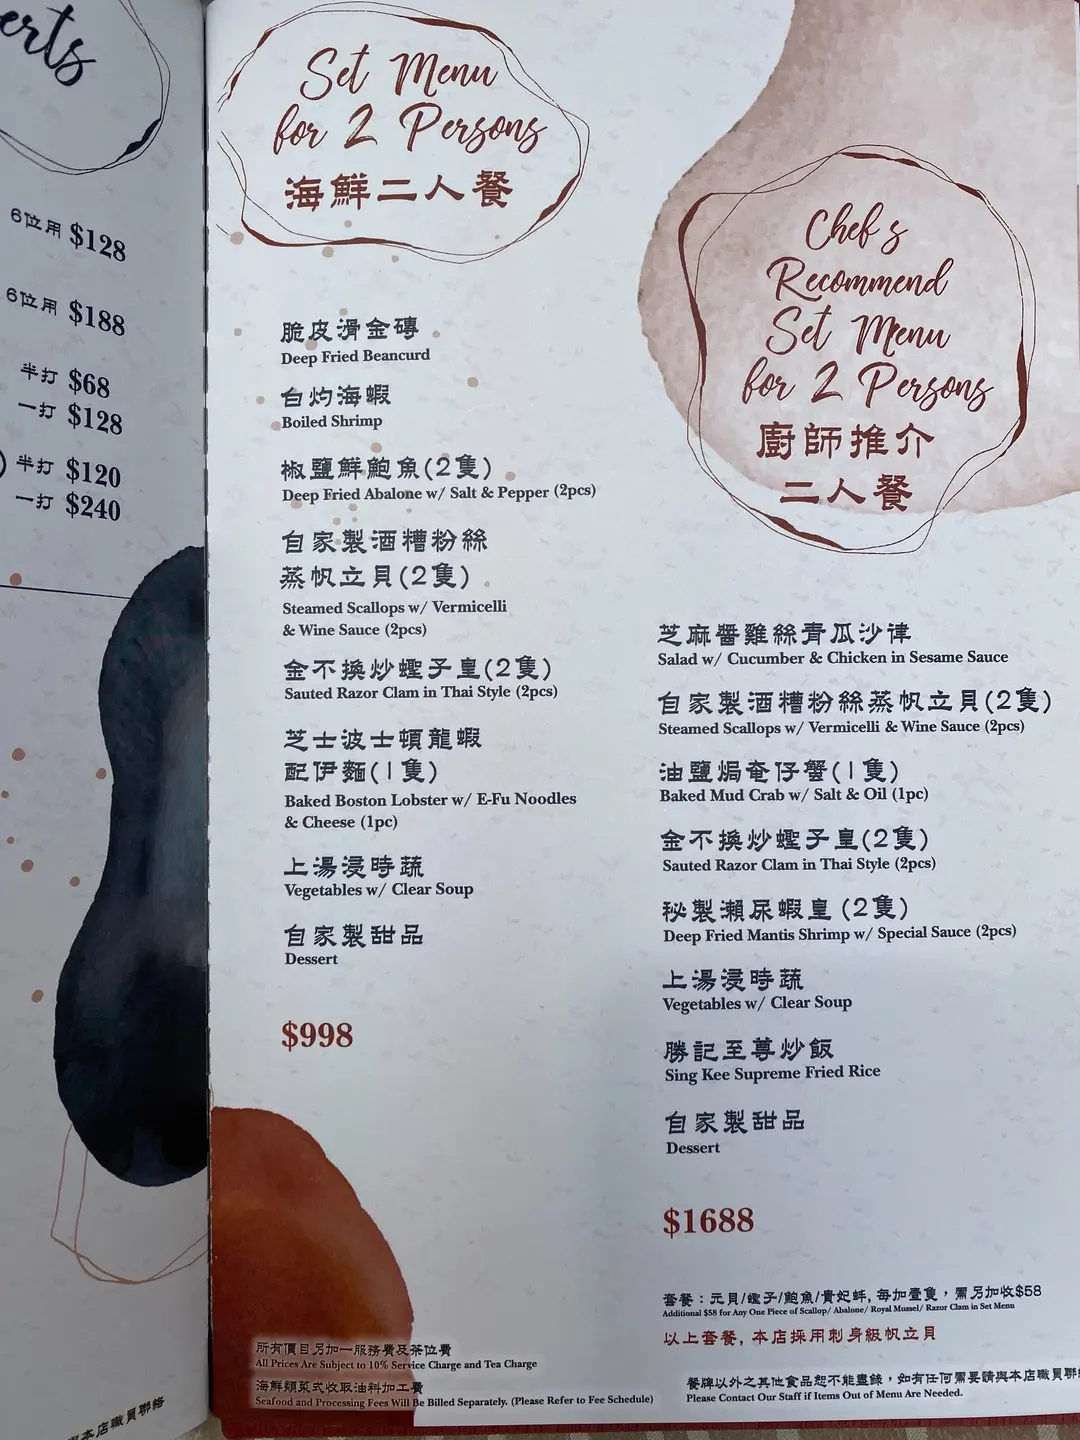 erts
6位用 $128
6位用 $188
半打 $68
一打 $128
半打 $120
一打 $240
本店職員聯絡
Set Menu
for 2 Persons
海鮮二人餐
脆皮滑金磚
Deep Fried Beancurd
白灼海蝦
Boiled Shrimp
椒鹽鮮鮑魚(2隻)
Deep Fried Abalone w/ Salt & Pepper (2pcs)
自家製酒糟粉絲
蒸帆立貝(2隻)
Steamed Scallops w/ Vermicelli
& Wine Sauce (2pcs)
金不換炒蟶子皇(2隻)
Sauted Razor Clam in Thai Style (2pcs)
芝士波士頓龍蝦
配伊麵(1隻)
Baked Boston Lobster w/ E-Fu Noodles
& Cheese (1pc)
上湯浸時蔬
Vegetables w/ Clear Soup
自家製甜品
Dessert
$998
所有價目另加一服務費及茶位費
All Prices Are Subject to 10% Service Charge and Tea Charge
海鮮類菜式收取油料加工費
Seafood and Processing Fees Will Be Billed Separately. (Please Refer to Fee Schedule)
Chef's
Recommend
Set Menu
for 2 Persons
廚師推介
二人餐
芝麻醬雞絲青瓜沙律
Salad w/ Cucumber & Chicken in Sesame Sauce
自家製酒糟粉絲蒸帆立貝(2隻)
Steamed Scallops w/ Vermicelli & Wine Sauce (2pcs)
油鹽焗奄仔蟹(1隻)
Baked Mud Crab w/ Salt & Oil (1pc)
金不換炒蟶子皇(2隻)
Sauted Razor Clam in Thai Style (2pcs)
秘製瀨尿蝦皇 (2隻)
Deep Fried Mantis Shrimp w/ Special Sauce (2pcs)
上湯浸時蔬
Vegetables w/ Clear Soup
勝記至尊炒飯
Sing Kee Supreme Fried Rice
自家製甜品
Dessert
$1688
套餐：元貝/蟶子/鮑魚/貴妃蚌, 每加壹隻，需另加收$58
Additional $58 for Any One Piece of Scallop/ Abalone/ Royal Mussel/ Razor Clam in Set Menu
以上套餐, 本店採用刺身級帆立貝
餐牌以外之其他食品恕不能盡錄，如有任何需要請與本店職員聯
Please Contact Our Staff if Items Out of Menu Are Needed.